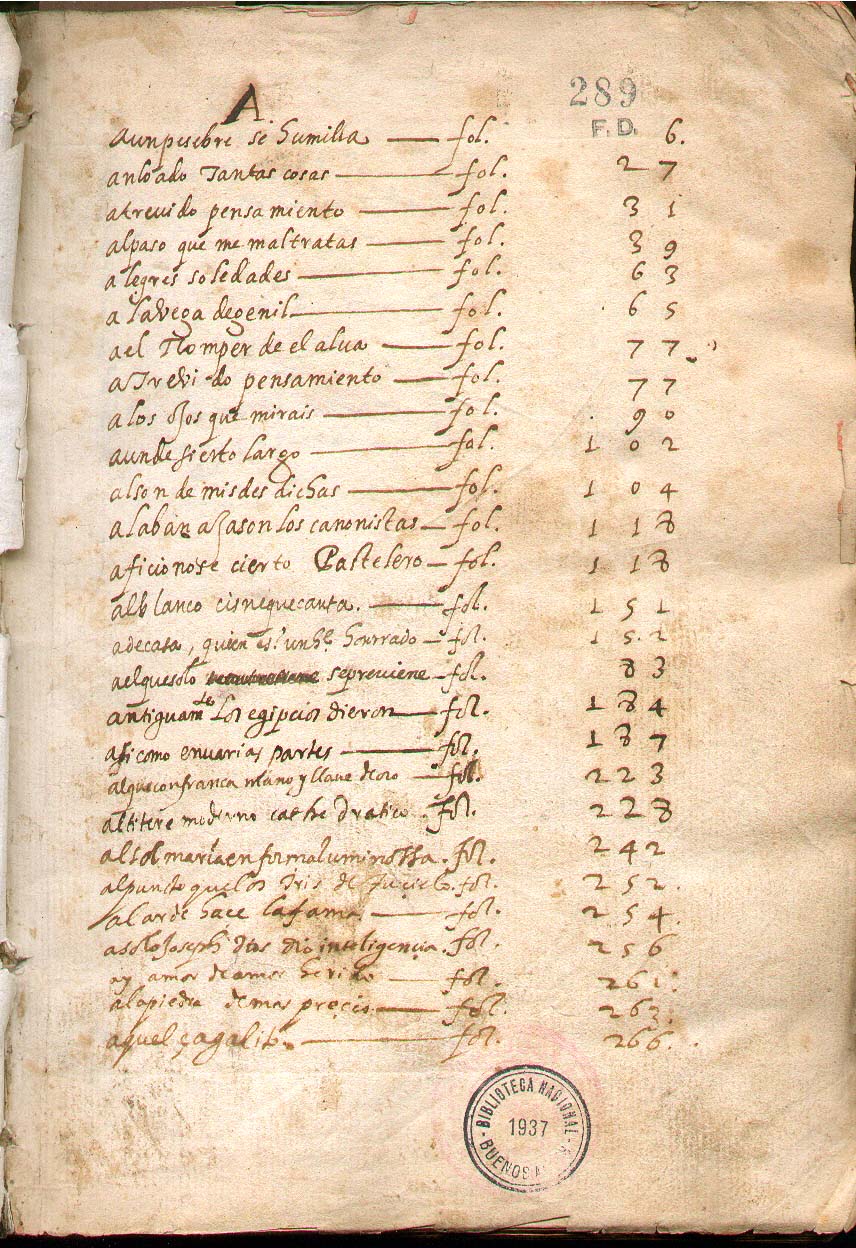 A
289
F. D.
aunpesebre se humilla fol. 6.
anloado Tantas cosas fol. 27
atreuido pensamiento fol. 31
alpaso que me maltratas fol. 39
alegres soledades fol. 63
a lavega degenil fol. 65
ael Romper de el alua fol. 77
aTrevido pensamiento fol. 77
alos ojos que mirais fol. 90
aundesierto largo fol. 102
alson de misdesdichas fol. 104
alaban a Jason los canonistas fol. 118
aficionose cierto Pastelero fol. 118
alblanco cisnequecanta. fol. 151
adecasa, quien es? unhe. honrrado fol. 152
aelquesolo sepreuiene fol. 83
antiguamte Los egipcios dieron fol. 184
asicomo enuarias partes fol. 187
alqueconfranca mano y llaue de oro fol. 223
altitere moderno cathedratico. fol. 228
alsol mariaen formaluminossa. fol. 242
alpuncto quelos Iris de fol. 252.
alarde hace lafama. fol. 254.
asolo Joseph dios dio inteligencia. fol. 256
ay amor de amor herido fol. 261.
alapiedra demas precio fol. 263.
aquel çagalito. fol. 266.
BIBLIOTECA NACIONAL
1937
BUENOS A